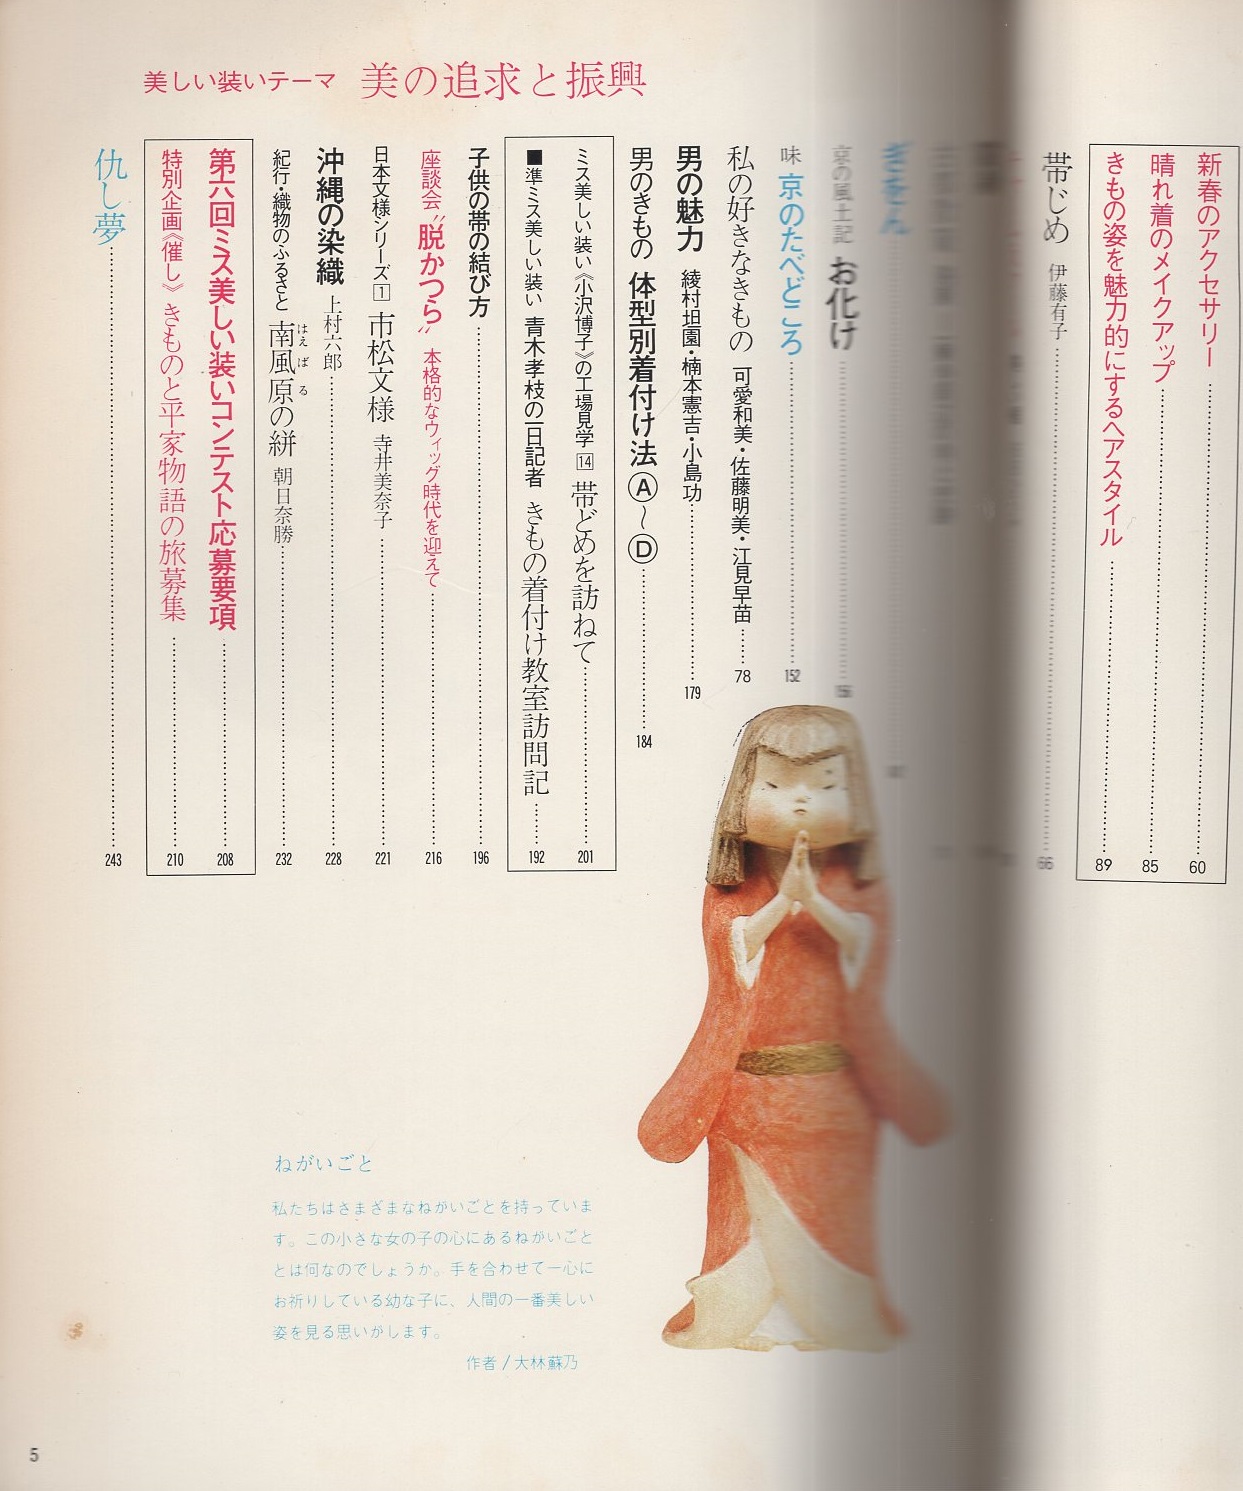 美しい装いテーマ 美の追求と振興
新春のアクセサリー 60
晴れ着のメイクアップ 85
きもの姿を魅力的にするヘアスタイル 89
帯じめ 伊藤有子 66
ぎをん
京の風土記 お化け 156
味 京のたべどころ 152
私の好きなきもの 可愛和美・佐藤明美・江見早苗 78
男の魅力 綾村坦園・楠本憲吉・小島功 179
男のきもの 体型別着付け法Ⓐ〜Ⓓ 184
ミス美しい装い《小沢博子》の工場見学14 帯どめを訪ねて 201
■準ミス美しい装い 青木孝枝の一日記者 きもの着付け教室訪問記 192
子供の帯の結び方 196
座談会〝脱かつら〟 本格的なウィッグ時代を迎えて 216
日本文様シリーズ1 市松文様 寺井美奈子 221
沖縄の染織 上村六郎 228
紀行・織物のふるさと 南風原の絣 朝日奈勝 232
はえばる
第六回ミス美しい装いコンテスト応募要項 208
特別企画《催し》 きものと平家物語の旅募集 210
仇し夢 243
ねがいごと
私たちはさまざまなねがいごとを持っていま
す。この小さな女の子の心にあるねがいごと
とは何なのでしょうか。手を合わせて一心に
お祈りしている幼な子に、人間の一番美しい
姿を見る思いがします。
作者/大林蘇乃
5